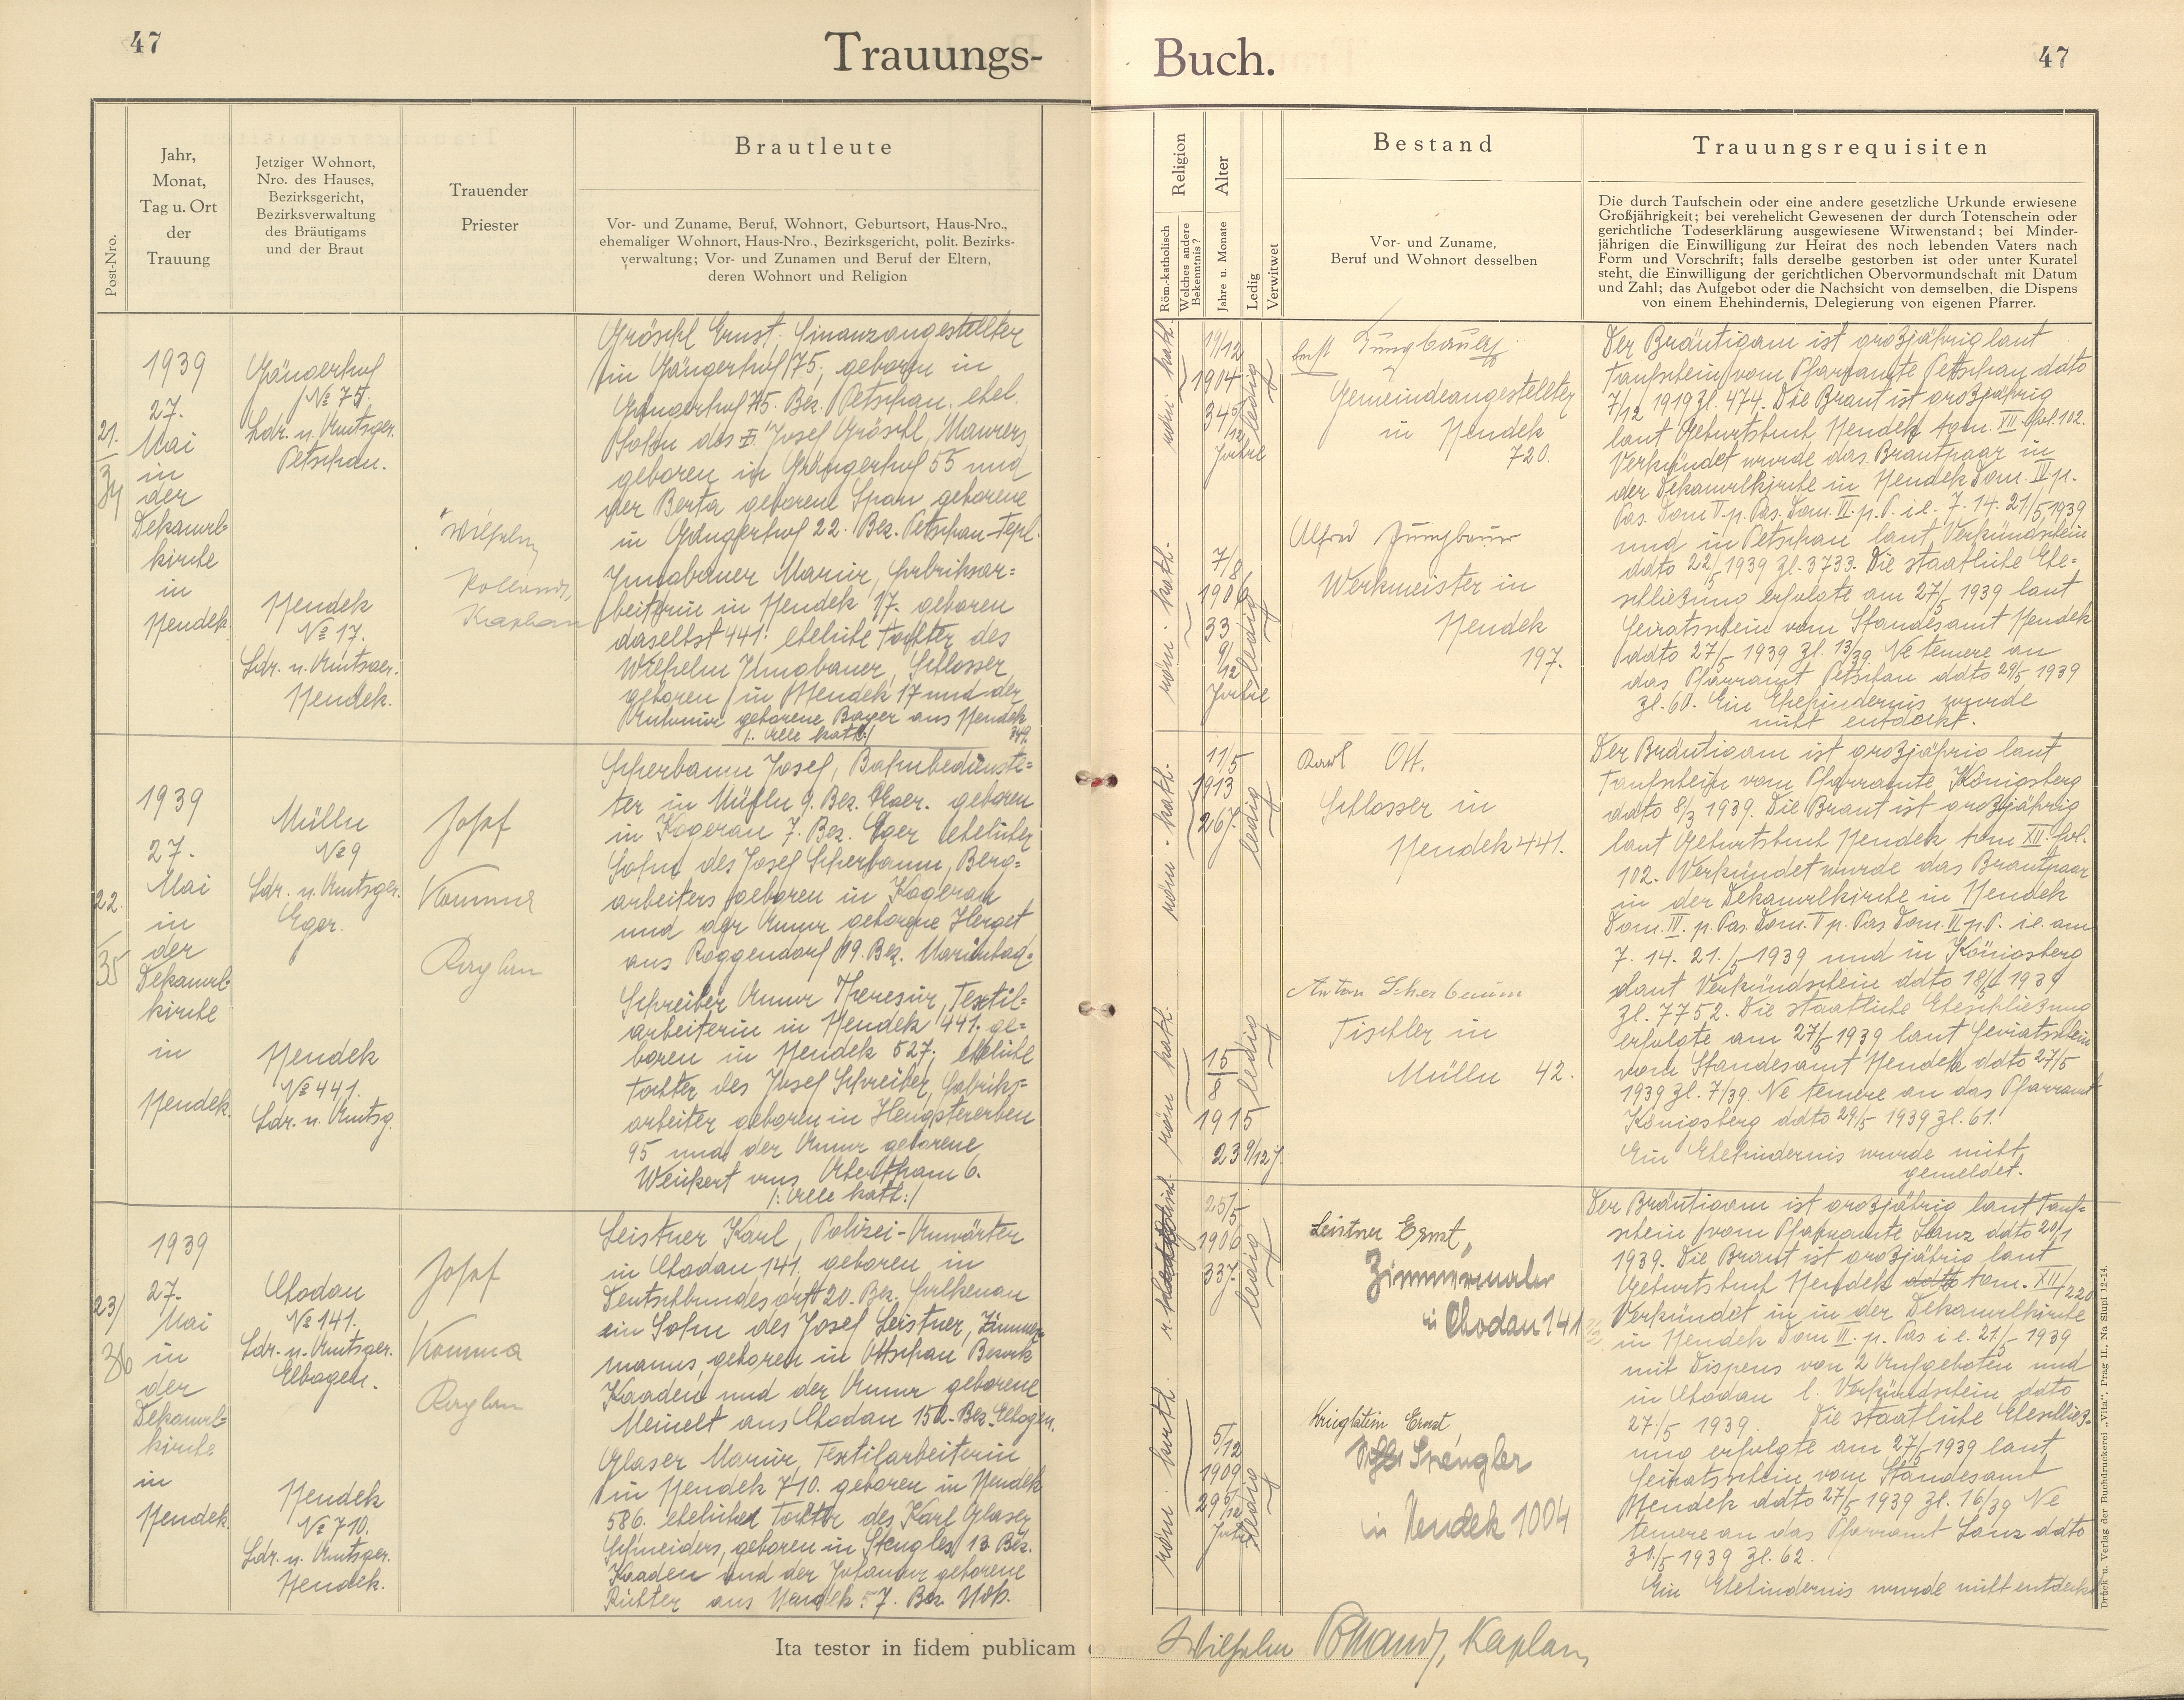 47
Trauungs-
Buch.
47
Post-Nro.
Jahr,
Monat,
Tag u. Ort
der
Trauung
Jetziger Wohnort,
Nro. des Hauses,
Bezirksgericht,
Bezirksverwaltung
des Bräutigams
und der Braut
Trauender
Priester
Brautleute
Vor- und Zuname, Beruf, Wohnort, Geburtsort, Haus-Nro.,
ehemaliger Wohnort, Haus-Nro., Bezirksgericht, polit. Bezirks-
verwaltung; Vor- und Zunamen und Beruf der Eltern,
deren Wohnort und Religion
Religion
Röm.-katholisch
Welches andere
Bekenntnis?
Alter
Jahre u. Monate
Ledig
Verwitwet
Bestand
Vor- und Zuname,
Beruf und Wohnort desselben
Trauungsrequisiten
Die durch Taufschein oder eine andere gesetzliche Urkunde erwiesene
Großjährigkeit; bei verehelicht Gewesenen der durch Totenschein oder
gerichtliche Todeserklärung ausgewiesene Witwenstand; bei Minder-
jährigen die Einwilligung zur Heirat des noch lebenden Vaters nach
Form und Vorschrift; falls derselbe gestorben ist oder unter Kuratel
steht, die Einwilligung der gerichtlichen Obervormundschaft mit Datum
und Zahl; das Aufgebot oder die Nachsicht von demselben, die Dispens
von einem Ehehindernis, Delegierung von eigenen Pfarrer.
21.
34
1939
27.
Mai
in
der
Dekanal-
kirche
in
Neudek.
Gängerhof
No 75.
Ldr. u. Amtsger.
Petschau.
Neudek
No 17.
Ldr. u. Amtsger.
Neudek.
Wilhelm
Kaplan
Gröschl Ernst, Finanzangestellter
in Gängerhof 75, geboren in
Gängerhof 75. Bez. Petschau. ehel.
Sohn des Josef Gröschl, Maurers
geboren in Gängerhof 55 und
der Berta geborene Span geborene
in Gängerhof 22. Bez. Petschau-Tepl.
Jungbauer Maria, Fabriksar-
beiterin in Neudek 17. geboren
daselbst 441. eheliche Tochter des
Wilhelm Jungbauer, Schlosser
geboren in Neudek 17 und der
Antonia geborene Bayer aus Neudek
349.
/: alle kath:/
röm. kath.
19/12
1904
34 5/12
Jahre
ledig
röm. kath.
7/8
1906
33
9/12
Jahre
ledig
Jungbauer
Gemeindeangestellter
in Neudek
720.
Alfred Jungbauer
Werkmeister in
Neudek
197.
Der Bräutigam ist großjährig laut
Taufschein vom Pfarramte Petschau ddto
7/12 1919 Zl. 474. Die Braut ist großjährig
laut Geburtsbuch Neudek tom. VII fol. 102.
Verkündet wurde das Brautpaar in
der Dekanalkirche in Neudek Dom. IV p.
Pas. Dom V. p. Pas. Dom. VI. p. P. i e. 7. 14. 21/5 1939
und in Petschau laut Verkündschein
ddto 22/5 1939 Zl. 3733. Die staatliche Ehe-
schließung erfolgte am 27/5 1939 laut
Heiratsschein vom Standesamt Neudek
ddto 27/5 1939 Zl. 13/39. Ne temere an
das Pfarramt Petschau ddto 29/5 1939
Zl. 60. Ein Ehehindernis wurde
nicht entdeckt.
22.
35
1939
27.
Mai
in
der
Dekanal-
kirche
in
Neudek.
Mülln
No 9
Ldr. u. Amtsger.
Eger.
Neudek
No 441.
Ldr. u. Amtsg.
Josef
Komma
Kaplan
Scherbaum Josef, Bahnbedienste-
ter in Mülln 9. Bez. Eger. geboren
in Kogerau 7. Bez. Eger ehelicher
Sohn des Josef Scherbaum, Berg-
arbeiters geboren in Kogerau
und der Anna geborene Herget
aus Roggendorf 19. Bez. Marienbad.
Schreiber Anna Theresia, Textil-
arbeiterin in Neudek 441. ge-
boren in Neudek 527; eheliche
Tochter des Josef Schreiber, Fabriks-
arbeiter geboren in Hengstererben
95 und der Anna geborene
Weikert aus Abertham 6.
/: alle kath:/
röm. kath.
11/5
1913
26 J.
ledig
röm. kath.
15
8
1915
23 9/12 J.
ledig
Karl Ott.
Schlosser in
Neudek 441.
Anton Scherbaum
Tischler in
Mülln 42.
Der Bräutigam ist großjährig laut
Taufschein vom Pfarramte Königsberg
ddto 8/3 1939. Die Braut ist großjährig
laut Geburtsbuch Neudek tom XII. fol.
102. Verkündet wurde das Brautpaar
in der Dekanalkirche in Neudek
Dom. IV. p. Pas. Dom. V p. Pas Dom. VI p. P. i.e. am
7. 14. 21./5 1939 und in Königsberg
laut Verkündschein ddto 18/5 1939
Zl. 7752. Die staatliche Eheschließung
erfolgte am 27/5 1939 laut Heiratsschein
vom Standesamt Neudek ddto 27/5
1939 Zl. 7/39. Ne temere an das Pfarramt
Königsberg ddto 29/5 1939 Zl. 61.
Ein Ehehindernis wurde nicht
gemeldet.
23/
36
1939
27.
Mai
in
der
Dekanal-
kirche
in
Neudek.
Chodau
No 141.
Ldr. u. Amtsger.
Elbogen.
Neudek
No 710.
Ldr. u. Amtsger.
Neudek.
Josef
Komma
Kaplan
Leistner Karl, Polizei-Anwärter
in Chodau 141. geboren in
Deutschbundesort 20. Bez. Falkenau
ein Sohn des Josef Leistner, Zimmer-
manns, geboren in Ottschau Bezirk
Kaaden und der Anna geborene
Meinelt aus Chodau 152. Bez. Elbogen.
Glaser Maria, Textilarbeiterin
in Neudek 710. geboren in Neudek
586. eheliche Tochter des Karl Glaser
Schneiders, geboren in Stengles 13 Bez.
Kaaden und der Johanna geborene
Richter aus Neudek 57. Bez. Ndk.
25/5
1906
33 J.
ledig
röm. kath.
5/12
1909
29 5/12
Jahre
ledig
Leistner Ernst,
Zimmermaler
in Chodau 141
Krieglstein Ernst,
Spengler
in Neudek 1004
Der Bräutigam ist großjährig laut Tauf-
schein vom Pfarramte Lanz ddto 20/1
1939. Die Braut ist großjährig laut
Geburtsbuch Neudek ddto tom. XII/220
Verkündet in in der Dekanalkirche
in Neudek Dom VI. p. Pas i e. 21/5 1939
mit Dispens von 2 Aufgeboten und
in Chodau l. Verkündschein ddto
27./5 1939. Die staatliche Eheschließ-
ung erfolgte am 27/5 1939 laut
Heiratsschein vom Standesamt
Neudek ddto 27/5 1939 Zl. 16/39 Ne
temere an das Pfarramt Lanz ddto
30./5 1939 Zl. 62.
Ein Ehehindernis wurde nicht entdeckt
Ita testor in fidem publicam
Wilhelm Kaplan
Druck u. Verlag der Buchdruckerei „Vita“, Prag II., Na Slupi 12-14.